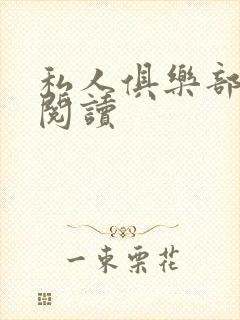 私人俱樂部
閱讀
一束栗花